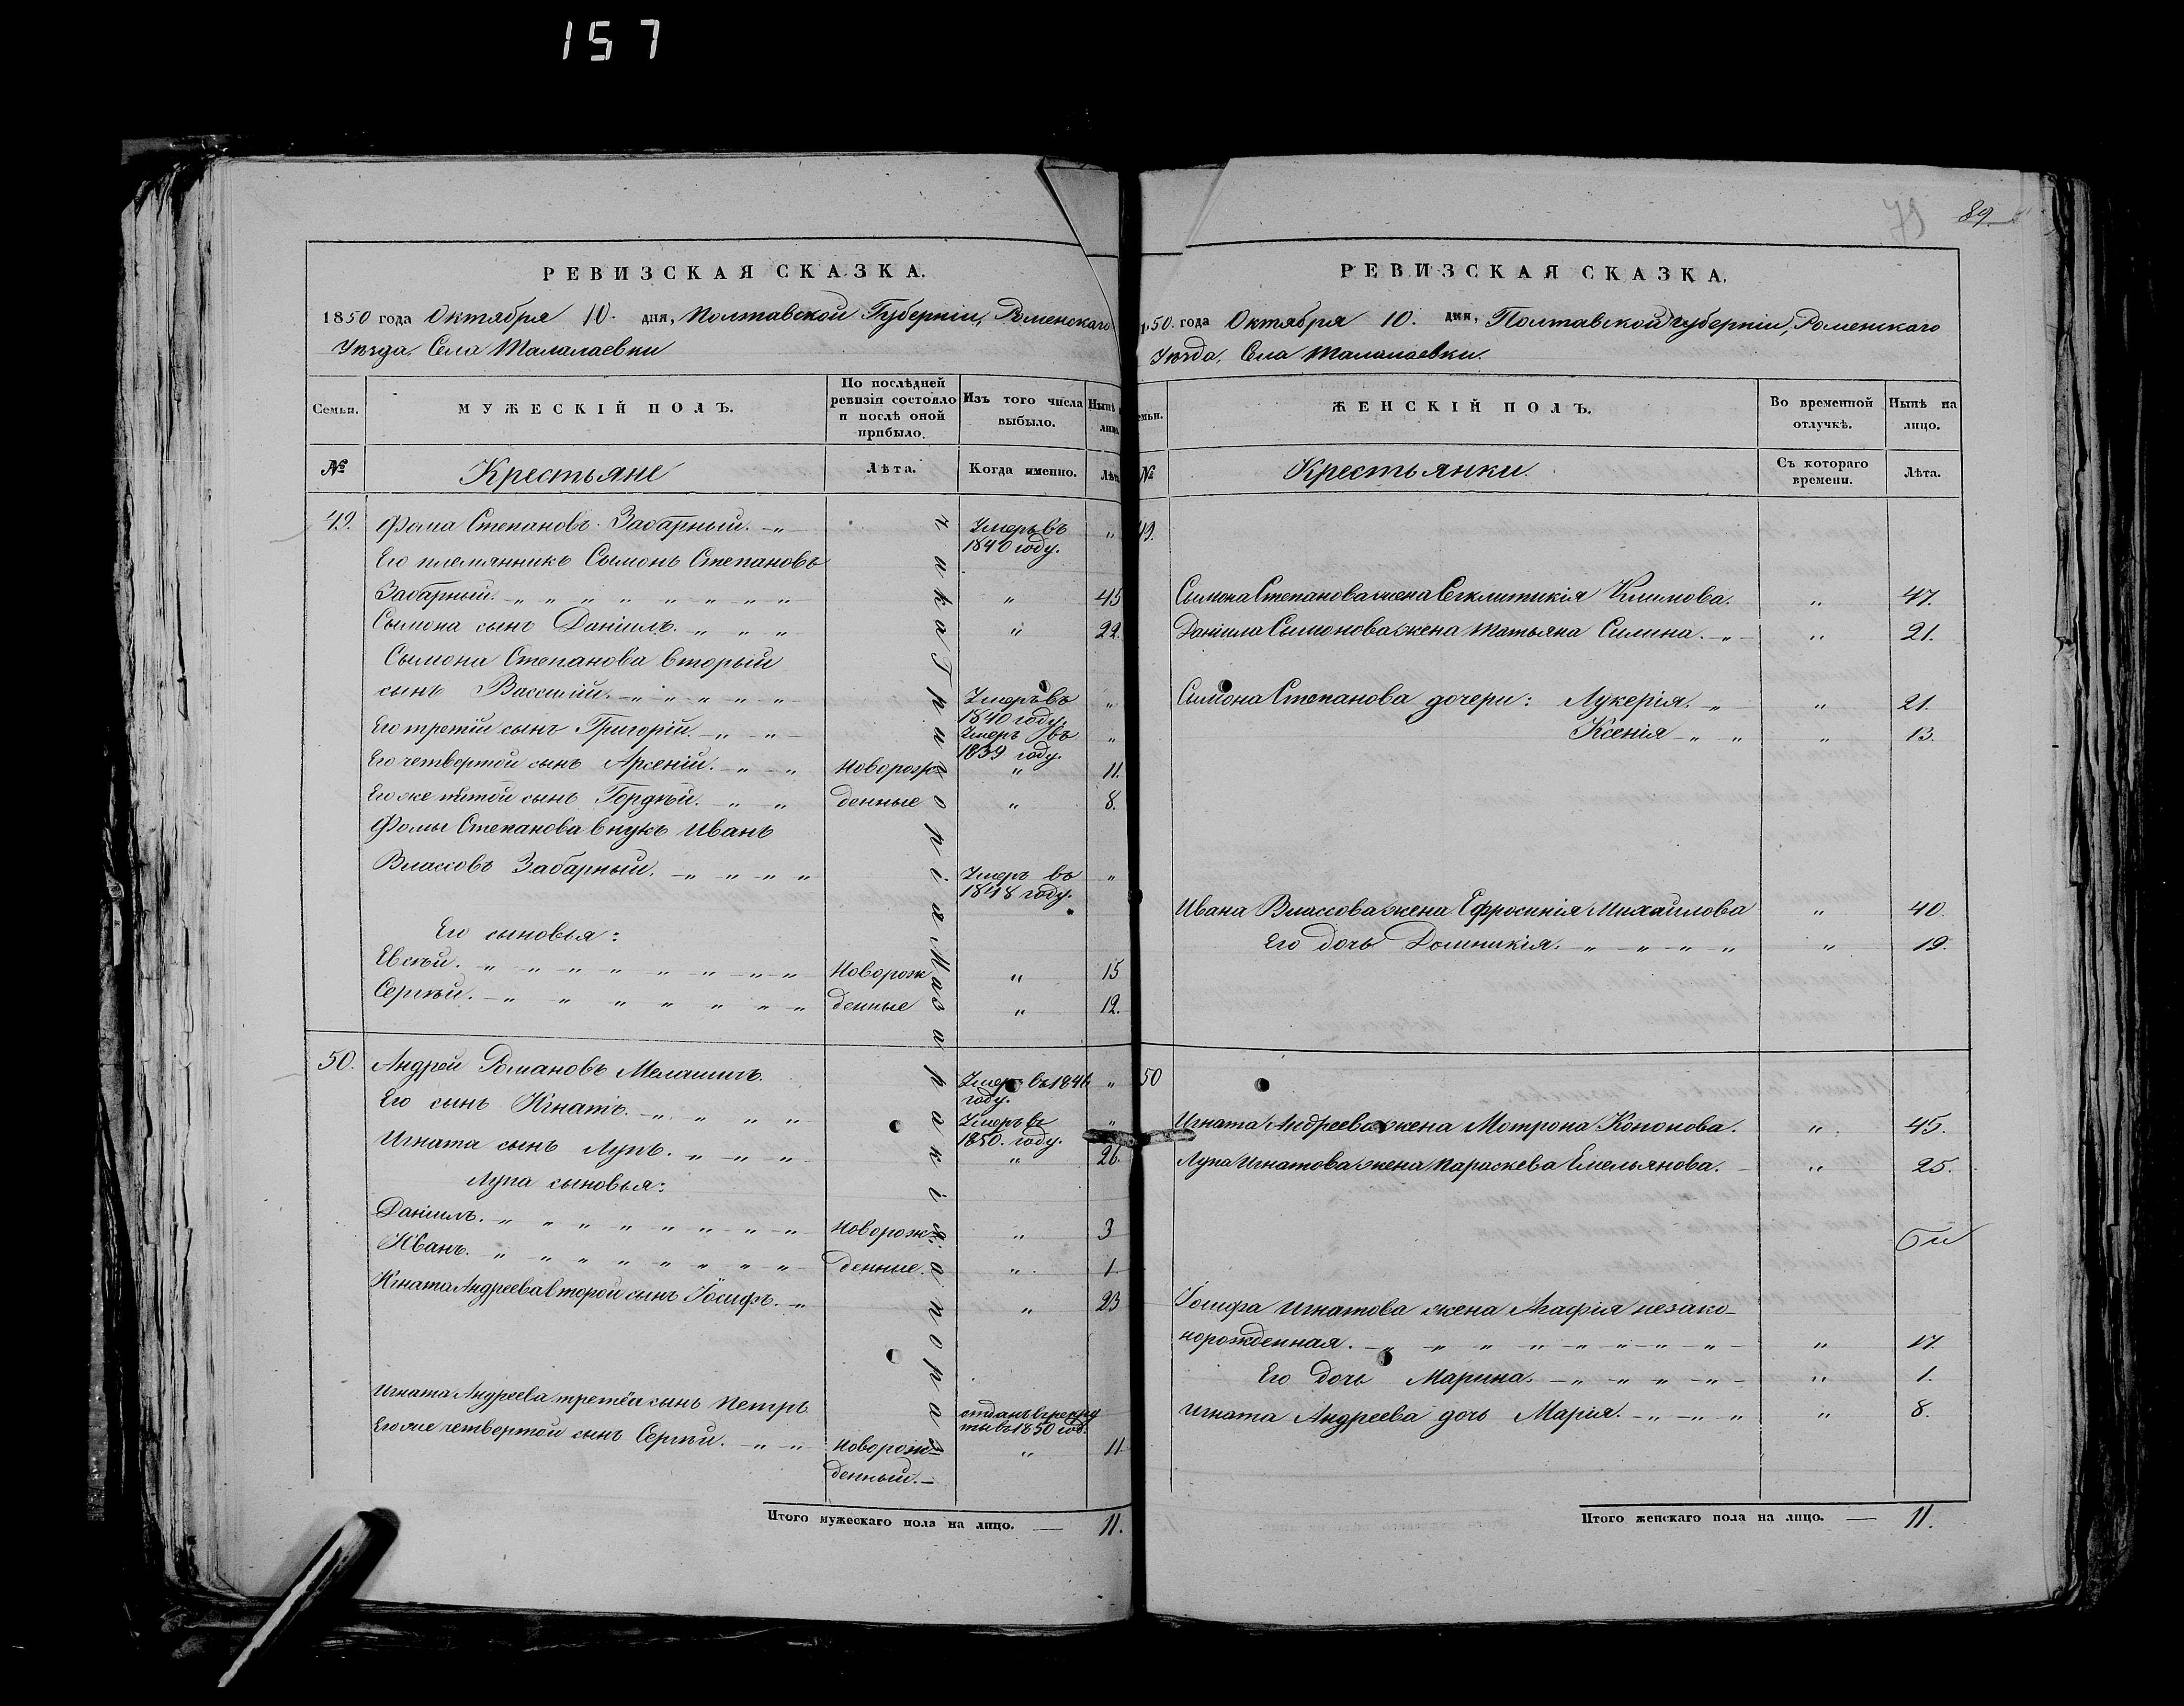 157
РЕВИЗСКАЯ СКАЗКА.
1850 года Октября 10. дня, Полтавской Губерніи, Роменскаго
Уѣзда, Села Талалаевки
Семьи.
МУЖЕСКІЙ ПОЛЪ.
По послѣдней
ревизіи состояло
и послѣ оной
прибыло.
Изъ того числа
выбыло.
Нынѣ
лицо
№
Крестьяне
Лѣта.
Когда именно.
Лѣта
49. Фома Степановъ Забарный. Умеръ въ
1840 году.
Его племянникъ Сымонъ Степановъ
Забарный. " 45
Сымона сынъ Даніилъ. " 22.
Сымона Степанова вторый
сынъ Вассилій. Умеръ въ "
1840 году.
Его третій сынъ Григорій. Умеръ въ "
1839 году.
Его четвертой сынъ Арсеній. Новорож= " 11.
Его же пятой сынъ Гордѣй. денные " 8.
Фомы Степанова внукъ Иванъ
Влассовъ Забарный. Умеръ въ "
1848 году.
Его сыновья:
Евсѣй. Новорож " 15
Сергѣй. денные " 12.
50. Андрей Романовъ Мелашичъ. Умеръ въ 184 "
году.
Его сынъ Игнатъ. Умеръ въ "
1850. году.
Игната сынъ Лупъ. " 26.
Лупа сыновья:
Даніилъ. Новорож= " 3
Иванъ. денные. " 1.
Игната Андреева второй сынъ Іосифъ. " 23
Игната Андреева третій сынъ Петръ отданъ въ рекру
ты въ 1850 год.
Его же четвертой сынъ Сергѣй. Новорож= " 11
денный.
Итого мужескаго пола на лицо. — 11.
79 89.
РЕВИЗСКАЯ СКАЗКА.
50 года Октября 10. дня, Полтавской Губерніи, Роменскаго
Уѣзда, Села Талалаевки.
емьи.
ЖЕНСКІЙ ПОЛЪ.
Во временной
отлучкѣ.
Нынѣ на
лицо.
№
Крестьянки.
Съ котораго
времени.
Лѣта.
49.
Сымона Степанова жена Синклитикія Климова. " 47.
Даніила Симонова жена Татьяна Силина. " 21.
Симона Степанова дочери: Лукерія. " 21.
Ксенія " 13.
Ивана Влассова жена Ефросинія Михайлова " 40.
Его дочь Домникія. " 19.
50
Игната Андреева жена Мотрона Кононова. " 45.
Лупа Игнатова жена Параскева Емельянова. " 25.
Іосифа Игнатова жена Агафія незако-
норожденная. " 17.
Его дочь Марина. " 1.
Игната Андреева дочь Марія. " 8.
Итого женскаго пола на лицо. — 11.